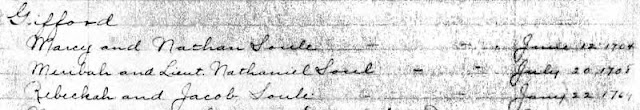 Gifford
Marcy and Nathan Soule - - - June 12 1704
Meribah and Lieut. Nathaniel Soul - - - July 20 1708
Rebeckah and Jacob Soule - - - Jany 22